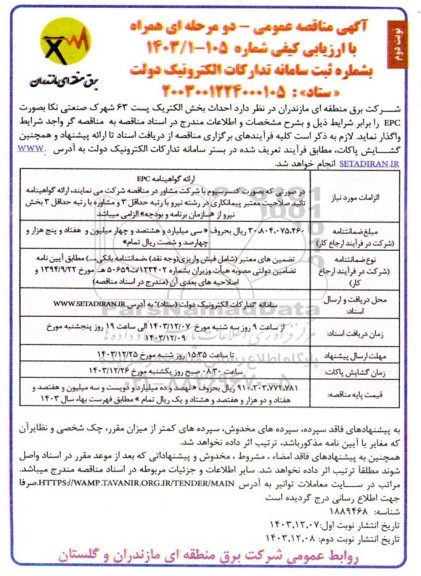 نوبت دوم
آگهی مناقصه عمومی – دو مرحله ای همراه
با ارزیابی کیفی شماره ۱۰۵-۱۴۰۳/۱
بشماره ثبت سامانه تدارکات الکترونیک دولت
«ستاد»: ۲۰۰۳۰۰۱۲۲۴۰۰۰۱۰۵
برق منطقه‌ای مازندران
شرکت برق منطقه ای مازندران در نظر دارد احداث بخش الکتریک پست ۶۳ شهرک صنعتی نکا بصورت
EPC را برابر شرایط ذیل و بشرح مشخصات و اطلاعات مندرج در اسناد مناقصه به مناقصه گر واجد شرایط
واگذار نماید. لازم به ذکر است کلیه فرآیندهای برگزاری مناقصه از دریافت اسناد تا ارائه پیشنهاد و همچنین
گشایش پاکات، مطابق فرآیند تعریف شده در بستر سامانه تدارکات الکترونیک دولت به آدرس WWW.
SETADIRAN.IR انجام خواهد شد.
الزامات مورد نیاز
ارائه گواهینامه EPC
در صورتی که بصورت کنسرسیوم یا شرکت مشاور در مناقصه شرکت می نمایند، ارائه گواهینامه
تائید صلاحیت معتبر پیمانکاری در رشته نیرو با رتبه حداقل ۳ و مشاوره با رتبه حداقل ۳ بخش
نیرو از «سازمان برنامه و بودجه» الزامی میباشد
مبلغ ضمانتنامه
(شرکت در فرآیند ارجاع کار)
۳۰،۸۰۴،۰۷۵،۴۶۰ ریال بحروف « سی میلیارد و هشتصد و چهار میلیون و هفتاد و پنج هزار و
چهارصد و شصت ریال تمام»
نوع ضمانتنامه
(شرکت در فرآیند ارجاع
کار)
تضمین های معتبر (شامل فیش واریزی(وجه نقد)، ضمانتنامه بانکی،...) مطابق آیین نامه
تضامین دولتی مصوبه هیأت وزیران بشماره ۱۲۳۴۰۲/ت۵۰۶۵۹ هـ مورخ ۱۳۹۴/۹/۲۲ و
اصلاحیه های بعدی آن (مندرج در اسناد مناقصه)
محل دریافت و ارسال
اسناد
سامانه "تدارکات الکترونیک دولت (ستاد)" به آدرس WWW.SETADIRAN.IR
زمان دریافت اسناد:
از ساعت ۹ روز سه شنبه مورخ ۱۴۰۳/۱۲/۰۷ الی ساعت ۱۹ روز پنجشنبه مورخ
۱۴۰۳/۱۲/۰۹
مهلت ارسال پیشنهاد
تا ساعت ۱۵:۳۵ روز شنبه مورخ ۱۴۰۳/۱۲/۲۵
زمان گشایش پاکات:
ساعت ۰۸:۳۰ صبح روز یکشنبه مورخ ۱۴۰۳/۱۲/۲۶
قیمت پایه مناقصه:
۹۱۰،۲۰۳،۷۷۲،۷۸۱ ریال بحروف «نهصد و ده میلیارد و دویست و سه میلیون و هفتصد و
هفتاد و دو هزار و هفتصد و هشتاد و یک ریال تمام » مطابق فهرست بهاء سال ۱۴۰۳
به پیشنهادهای فاقد سپرده، سپرده های مخدوش، سپرده های کمتر از میزان مقرر، چک شخصی و نظایرآن
که مغایر با آیین نامه مذکورباشد، ترتیب اثر داده نخواهد شد.
همچنین به پیشنهادهای فاقد امضاء ، مشروط ، مخدوش و پیشنهاداتی که بعد از موعد مقرر در اسناد واصل
شوند مطلقاً ترتیب اثر داده نخواهد شد. سایر اطلاعات و جزئیات مربوطه در اسناد مناقصه مندرج میباشد.
مراتب در سایت معاملات توانیر به آدرس HTTPS://WAMP.TAVANIR.ORG.IR/TENDER/MAIN.صرفا
جهت اطلاع رسانی درج گردیده است
شناسه: ۱۸۸۹۴۶۸
تاریخ انتشار نوبت اول: ۱۴۰۳,۱۲,۰۷
تاریخ انتشار نوبت دوم: ۱۴۰۳,۱۲,۰۸
روابط عمومی شرکت برق منطقه ای مازندران و گلستان